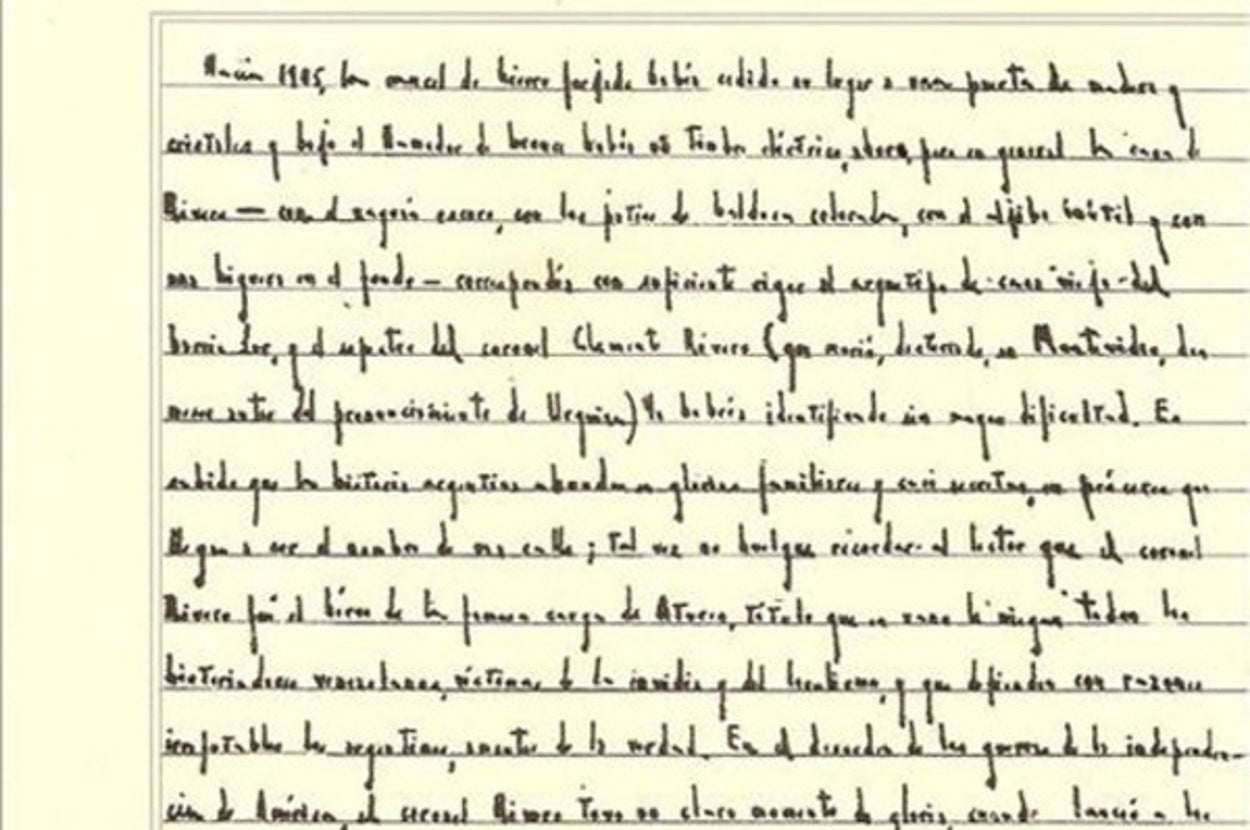 Hacia 1905, la cancel de hierro forjado había cedido su lugar a una puerta de madera y
cristales y bajo el llamador de bronce había un timbre eléctrico, ahora, pero en general la casa de
Rivero — con el zaguán oscuro, con los patios de baldosa colorada, con el aljibe inútil y con
las higueras en el fondo — correspondía con suficiente rigor al arquetipo de casa vieja del
barrio Sur, y el espectro del coronel Clement Rivero (que murió, desterrado, en Montevideo, dos
meses antes del pronunciamiento de Urquiza) la habría identificado sin mayor dificultad. Es
sabido que la historia argentina abunda en glorias familiares y casi secretas, en próceres que
llegan a ser el nombre de una calle; tal vez no huelgue recordar al lector que el coronel
Rivero fué el héroe de la famosa carga de, título que en vano le niegan todos los
historiadores venezolanos, víctimas de la envidia y del localismo, y que defienden con razones
irrefutables los argentinos, amantes de la verdad. En el decurso de las guerras de la independen-
cia de América, el coronel Rivero tuvo un claro momento de gloria, cuando lanzó a los